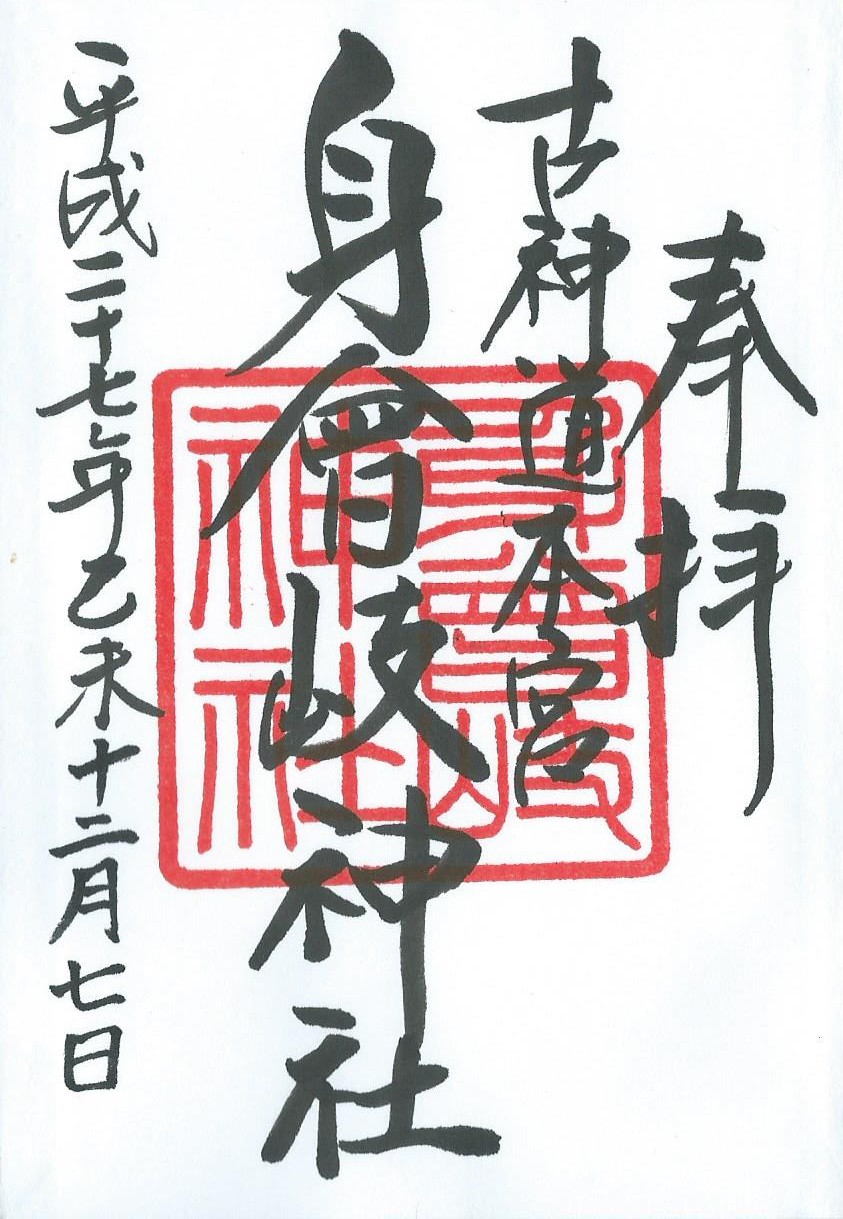 奉拝
古神道本宮
身曾岐神社
平成二十七年乙未十二月七日
身曾岐神社